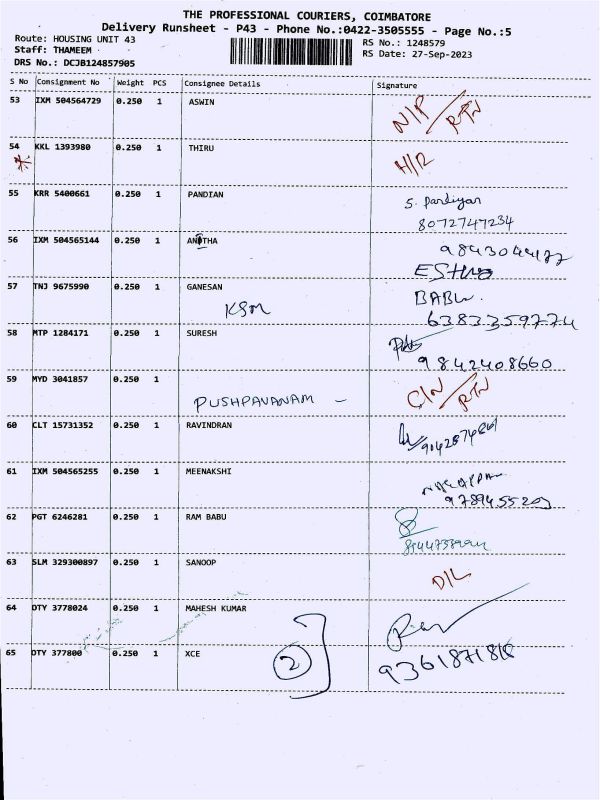 THE PROFESSIONAL COURIERS, COIMBATORE
Delivery Runsheet - P43 - Phone No.:0422-3505555 - Page No.:5
Route: HOUSING UNIT 43
RS No.: 1248579
Staff: THAMEEM
RS Date: 27-Sep-2023
DRS No.: DCJB124857905
S No Consignment No Weight PCS Consignee Details Signature
53 IXM 504564729 0.250 1 ASWIN N/P / RTN
54 KKL 1393980 0.250 1 THIRU H/R
55 KRR 5400661 0.250 1 PANDIAN S. Pandiyan
8072747234
56 IXM 504565144 0.250 1 ANITHA 9843044177
57 TNJ 9675990 0.250 1 GANESAN BABU.
KSM 6383359774
58 MTP 1284171 0.250 1 SURESH
9842408660
59 MYD 3041857 0.250 1 C/N / RTN
PUSHPAVANAM -
60 CLT 15731352 0.250 1 RAVINDRAN
61 IXM 504565255 0.250 1 MEENAKSHI
62 PGT 6246281 0.250 1 RAM BABU
63 SLM 329300897 0.250 1 SANOOP D/L
64 DTY 3778024 0.250 1 MAHESH KUMAR
65 DTY 377800 0.250 1 XCE 2